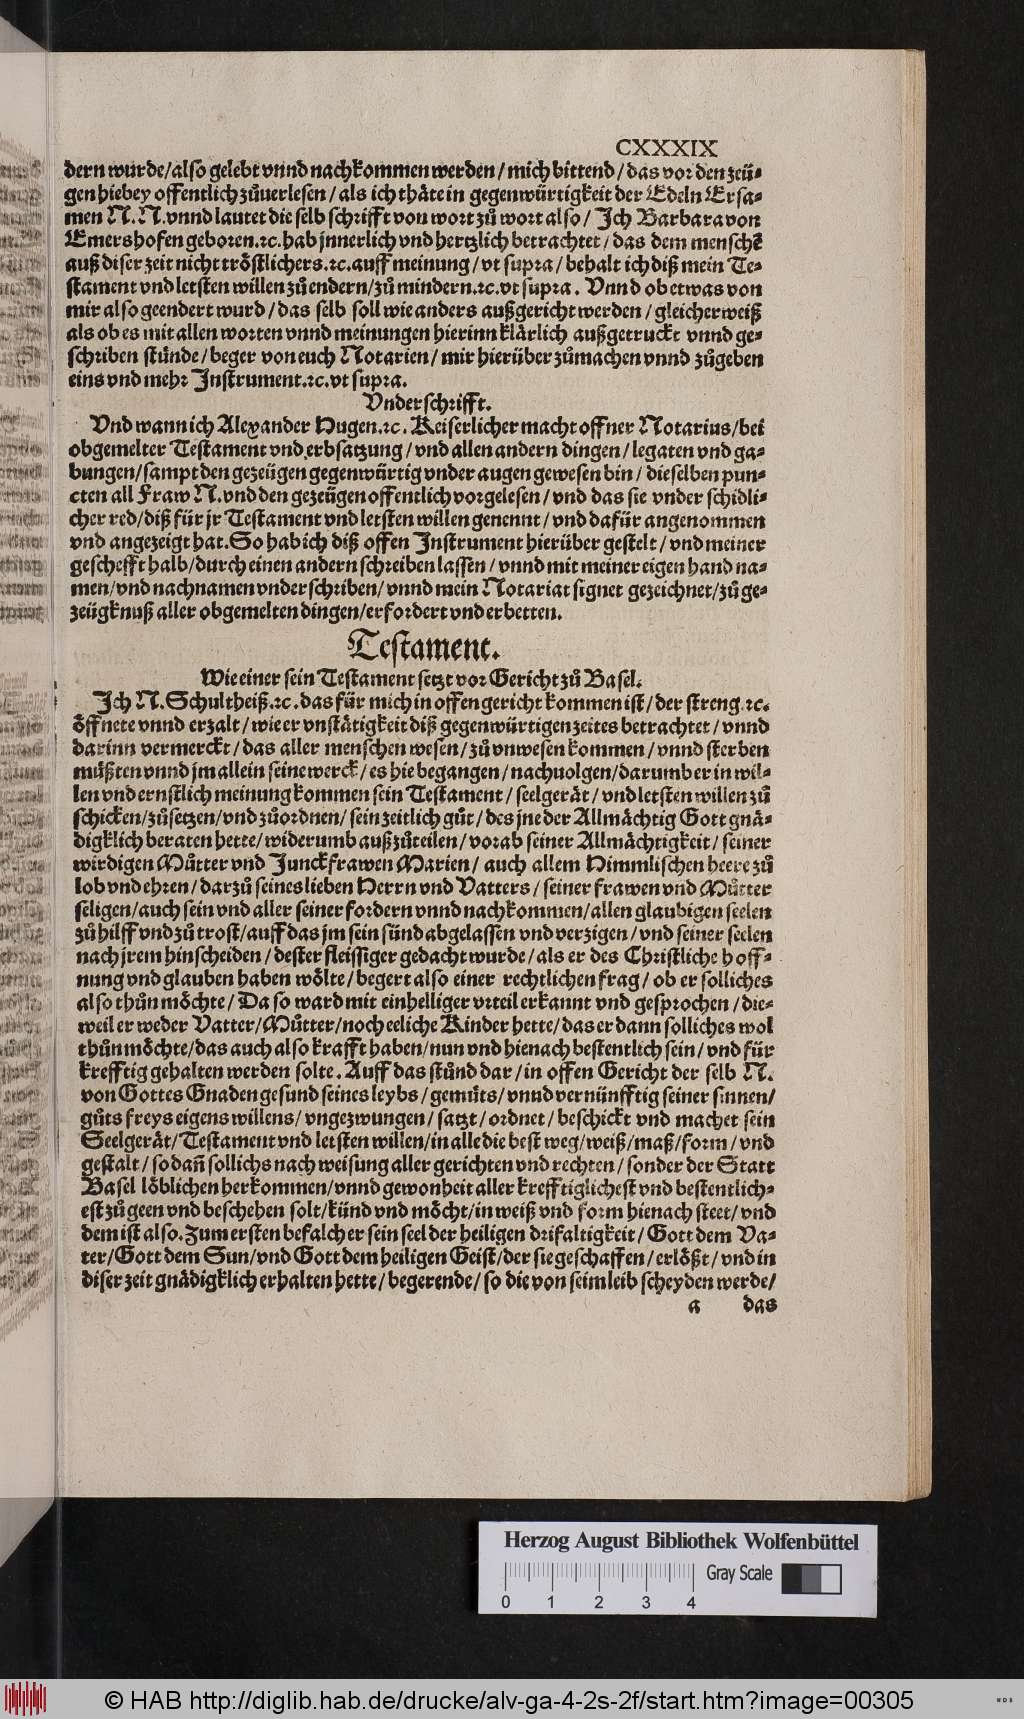 CXXXIX
dern wurde/also gelebt vnnd nachkommen werden/mich bittend/das vor den zeü-
gen hiebey offentlich zůuerlesen/als ich thäte in gegenwürtigkeit der Edeln Ersa-
men N.N.vnnd lautet die selb schrifft von wort zů wort also/Jch Barbara von
Emershofen geboren.ꝛc.hab jnnerlich vnd hertzlich betrachtet/das dem menschē
auß diser zeit nicht tröstlichers.ꝛc.auff meinung/vt supra/behalt ich diß mein Te-
stament vnd letsten willen zů endern/zů mindern.ꝛc.vt supra. Vnnd ob etwas von
mir also geendert wurd/das selb soll wie anders außgericht werden/gleicher weiß
als ob es mit allen worten vnnd meinungen hierinn klärlich außgetruckt vnnd ge-
schriben stünde/beger von euch Notarien/mir hierüber zůmachen vnnd zůgeben
eins vnd mehr Jnstrument.ꝛc.vt supra.
Vnderschrifft.
Vnd wann ich Alexander Hugen.ꝛc.Keiserlicher macht offner Notarius/bei
obgemelter Testament vnd erbsatzung/vnd allen andern dingen/legaten vnd ga-
bungen/sampt den gezeügen gegenwürtig vnder augen gewesen bin/dieselben pun-
cten all Fraw N.vnd den gezeügen offentlich vorgelesen/vnd das sie vnder schidli-
cher red/diß für jr Testament vnd letsten willen genennt/vnd dafür angenommen
vnd angezeigt hat.So hab ich diß offen Jnstrument hierüber gestelt/vnd meiner
geschefft halb/durch einen andern schreiben lassen/vnnd mit meiner eigen hand na-
men/vnd nachnamen vnderschriben/vnnd mein Notariat signet gezeichnet/zů ge-
zeügknuß aller obgemelten dingen/erfordert vnd erbetten.
Testament.
Wie einer sein Testament setzt vor Gericht zů Basel.
Jch N.Schultheiß.ꝛc.das für mich in offen gericht kommen ist/der streng.ꝛc.
öffnete vnnd erzalt/wie er vnstätigkeit diß gegenwürtigen zeites betrachtet/vnnd
darinn vermerckt/das aller menschen wesen/zů vnwesen kommen/vnnd sterben
müßten vnnd jm allein seine werck/es hie begangen/nachuolgen/darumb er in wil-
len vnd ernstlich meinung kommen sein Testament/seelgerät/vnd letsten willen zů
schicken/zůsetzen/vnd zůordnen/sein zeitlich gůt/des jne der Allmächtig Gott gnä-
digklich beraten hette/widerumb auß zůteilen/vorab seiner Allmächtigkeit/seiner
wirdigen Můtter vnd Junckfrawen Marien/auch allem Himmlischen heere zů
lob vnd ehren/darzů seines lieben Herrn vnd Vatters/seiner frawen vnd Můtter
seligen/auch sein vnd aller seiner fordern vnnd nachkommen/allen glaubigen seelen
zů hilff vnd zů trost/auff das jm sein sünd abgelassen vnd verzigen/vnd seiner seelen
nach jrem hinscheiden/dester fleissiger gedacht wurde/als er des Christliche hoff-
nung vnd glauben haben wölte/begert also einer rechtlichen frag/ob er solliches
also thůn möchte/Da so ward mit einhelliger vrteil erkannt vnd gesprochen/die-
weil er weder Vatter/Můtter/noch eeliche Kinder hette/das er dann solliches wol
thůn möchte/das auch also krafft haben/nun vnd hienach bestentlich sein/vnd für
krefftig gehalten werden solte.Auff das stůnd dar/in offen Gericht der selb N.
von Gottes Gnaden gesund seines leybs/gemüts/vnnd vernünfftig seiner sinnen/
gůts freys eigens willens/vngezwungen/satzt/ordnet/beschickt vnd machet sein
Seelgerät/Testament vnd letsten willen/in alle die best weg/weiß/maß/form/vnd
gestalt/so dañ sollichs nach weisung aller gerichten vnd rechten/sonder der Statt
Basel löblichen herkommen/vnnd gewonheit aller krefftiglichest vnd bestentlich-
est zů geen vnd beschehen solt/künd vnd möcht/in weiß vnd form hienach steet/vnd
dem ist also.Zum ersten befalch er sein seel der heiligen drifaltigkeit/Gott dem Va-
ter/Gott dem Sun/vnd Gott dem heiligen Geist/der sie geschaffen/erlößt/vnd in
diser zeit gnädigklich erhalten hette/begerende/so die von seim leib scheyden werde/
a das
Herzog August Bibliothek Wolfenbüttel
Gray Scale
0 1 2 3 4
© HAB http://diglib.hab.de/drucke/alv-ga-4-2s-2f/start.htm?image=00305